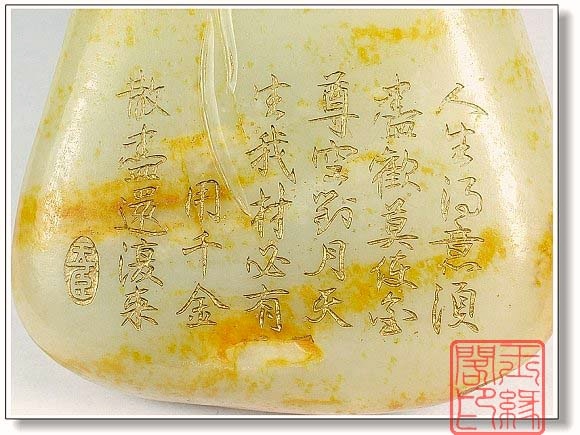 人生得意須
盡歡莫使金
尊空對月天
生我材必有
用千金
散盡還復来
玉緣
閣印